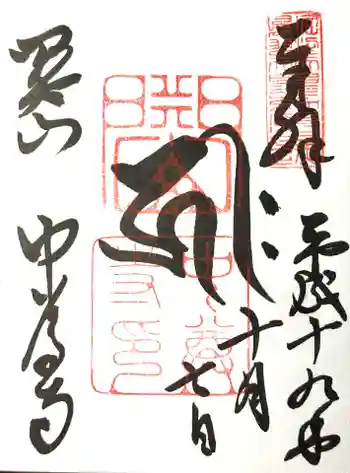 奉拝
平成十九年
十月
七日
関山
中尊寺